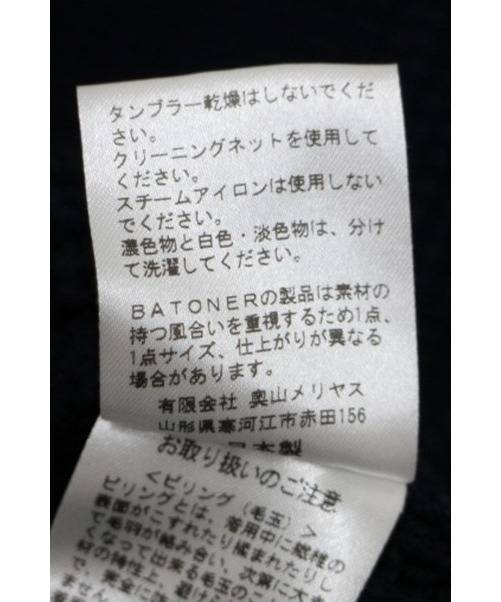 タンブラー乾燥はしないでくだ
さい。
クリーニングネットを使用して
ください。
スチームアイロンは使用しない
でください。
濃色物と白色・淡色物は、分け
て洗濯してください。
BATONERの製品は素材の
持つ風合いを重視するため1点、
1点サイズ、仕上がりが異なる
場合があります。
有限会社 奥山メリヤス
山形県寒河江市赤田156
日本製
お取り扱いのご注意
＜ピリング（毛玉）＞
ピリングとは、着用中に繊維の
表面がこすれたり揉まれたりし
て毛羽が絡み合い、次第に大き
くなって出来る毛玉のこ
材の特性上、避け
で、完全に
ません